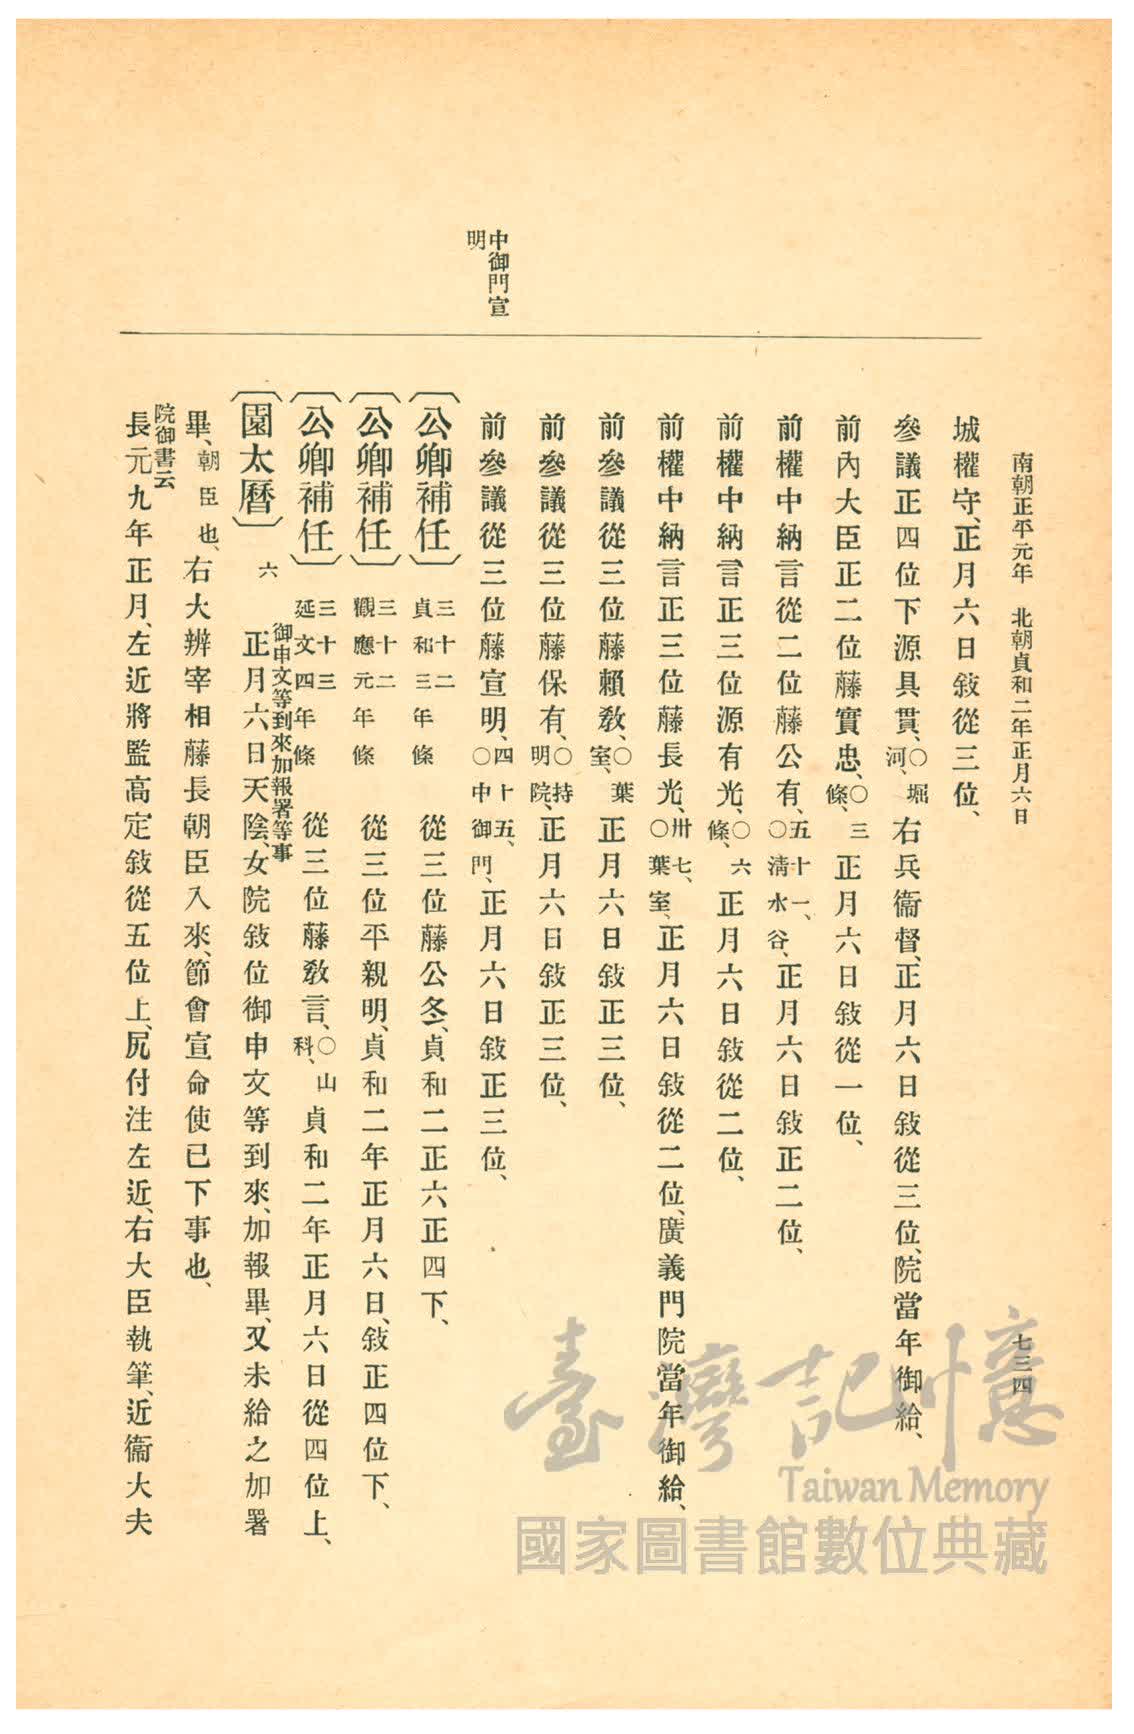 南朝正平元年　北朝貞和二年正月六日
七三四
中御門宣
明
城權守、正月六日敍從三位、
參議正四位下源具貫、○堀河、右兵衞督、正月六日敍從三位、院當年御給、
前內大臣正二位藤實忠、○三條、正月六日敍從一位、
前權中納言從二位藤公有、五十一、○淸水谷、正月六日敍正二位、
前權中納言正三位源有光、○六條、正月六日敍從二位、
前權中納言正三位藤長光、卅七、○葉室、正月六日敍從二位、廣義門院當年御給、
前參議從三位藤賴敎、○葉室、正月六日敍正三位、
前參議從三位藤保有、○持明院、正月六日敍正三位、
前參議從三位藤宣明、四十五、○中御門、正月六日敍正三位、
〔公卿補任〕三十二貞和三年條　從三位藤公冬、貞和二正六正四下、
〔公卿補任〕三十二觀應元年條　從三位平親明、貞和二年正月六日、敍正四位下、
〔公卿補任〕三十三延文四年條　從三位藤敎言、○山科、貞和二年正月六日從四位上、
御申文等到來加報署等事
〔園太曆〕六　正月六日天陰、女院敍位御申文等到來、加報畢、又未給之加署
畢、朝臣也、右大辨宰相藤長朝臣入來、節會宣命使已下事也、
院御書云
長元九年正月、左近將監高定敍從五位上、尻付注左近、右大臣執筆、近衞大夫
臺灣記憶
Taiwan Memory
國家圖書館數位典藏